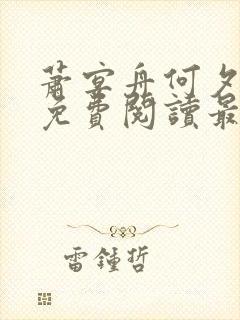 蕭宴舟何夕
免費閱讀最
雷鍾哲